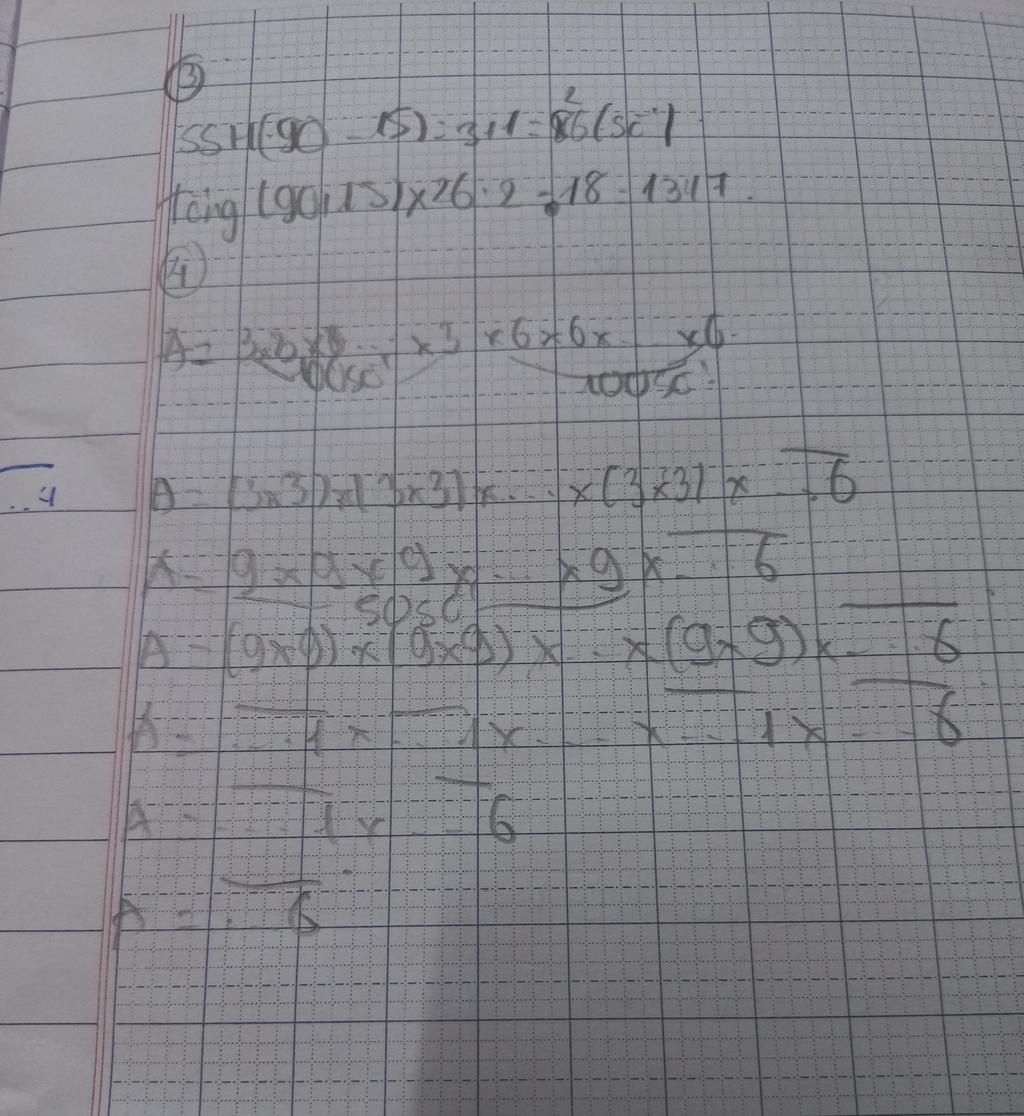 ③
SSH(90 - 15):3+1=26(số)
tổng (90+15)×26:2-18=1347.
④
A= 3×3×3...×3 ×6×6× ×6.
100số 100số
A=(3×3)×(3×3)×...×(3×3)×...6
..4
A=9×9×9×...×9×...6
50số
A=(9×9)×(9×9)×...×(9×9)×....6
A=...1×...1×....×...1×...6
A=...1×...6
A=..6